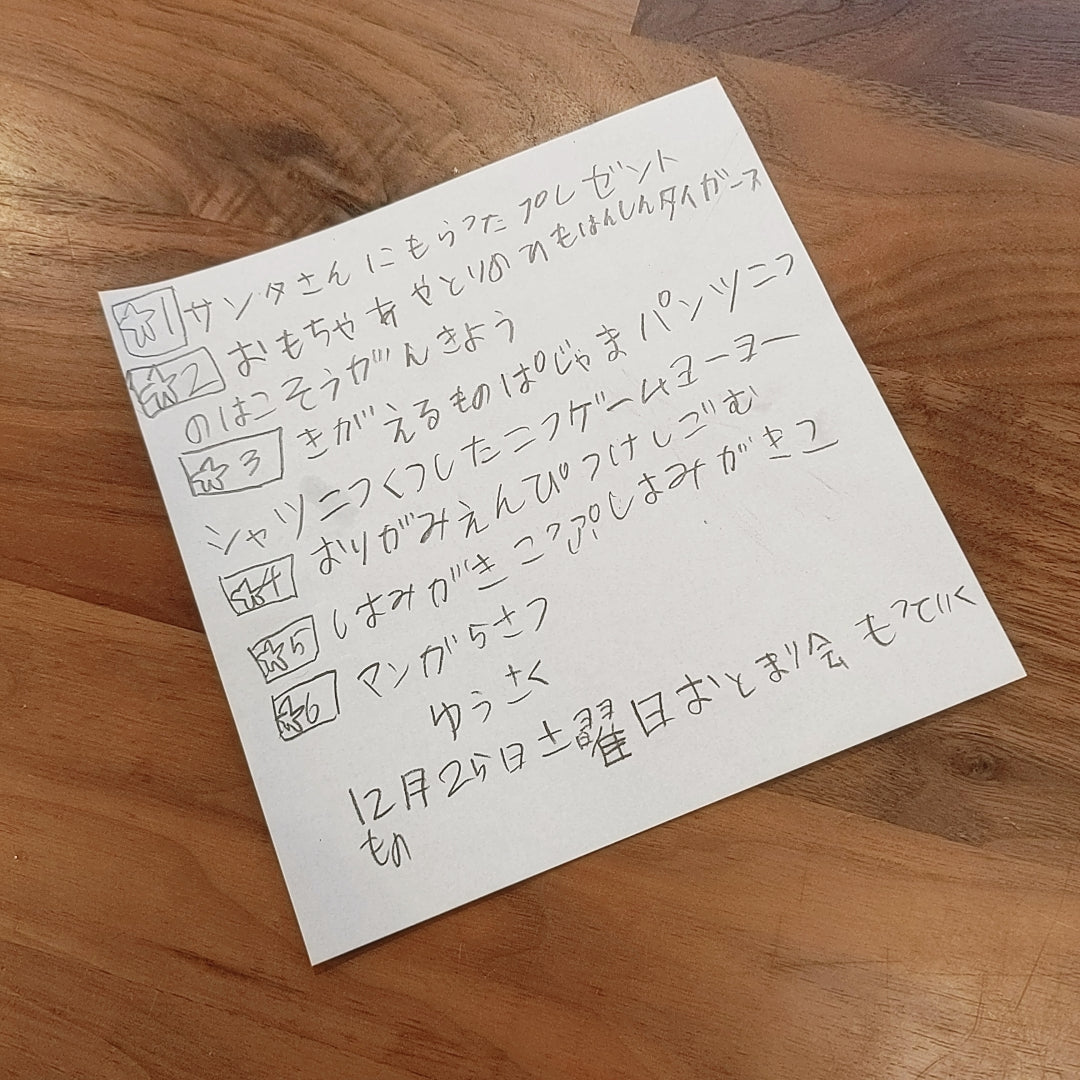 ☆1 サンタさんにもらったプレゼント
☆2 おもちゃあやとりのひもはんしんタイガース
のはこそうがんきよう
☆3 きがえるものぱじゃまパンツニつ
シャツニつくつしたニつゲームヨーヨー
☆4 おりがみえんぴつけしごむ
☆5 はみがきこっぷはみがきこ
☆6 マンガ5さつ
ゆうさく
12月25日土曜日おとまり会もっていく
もの